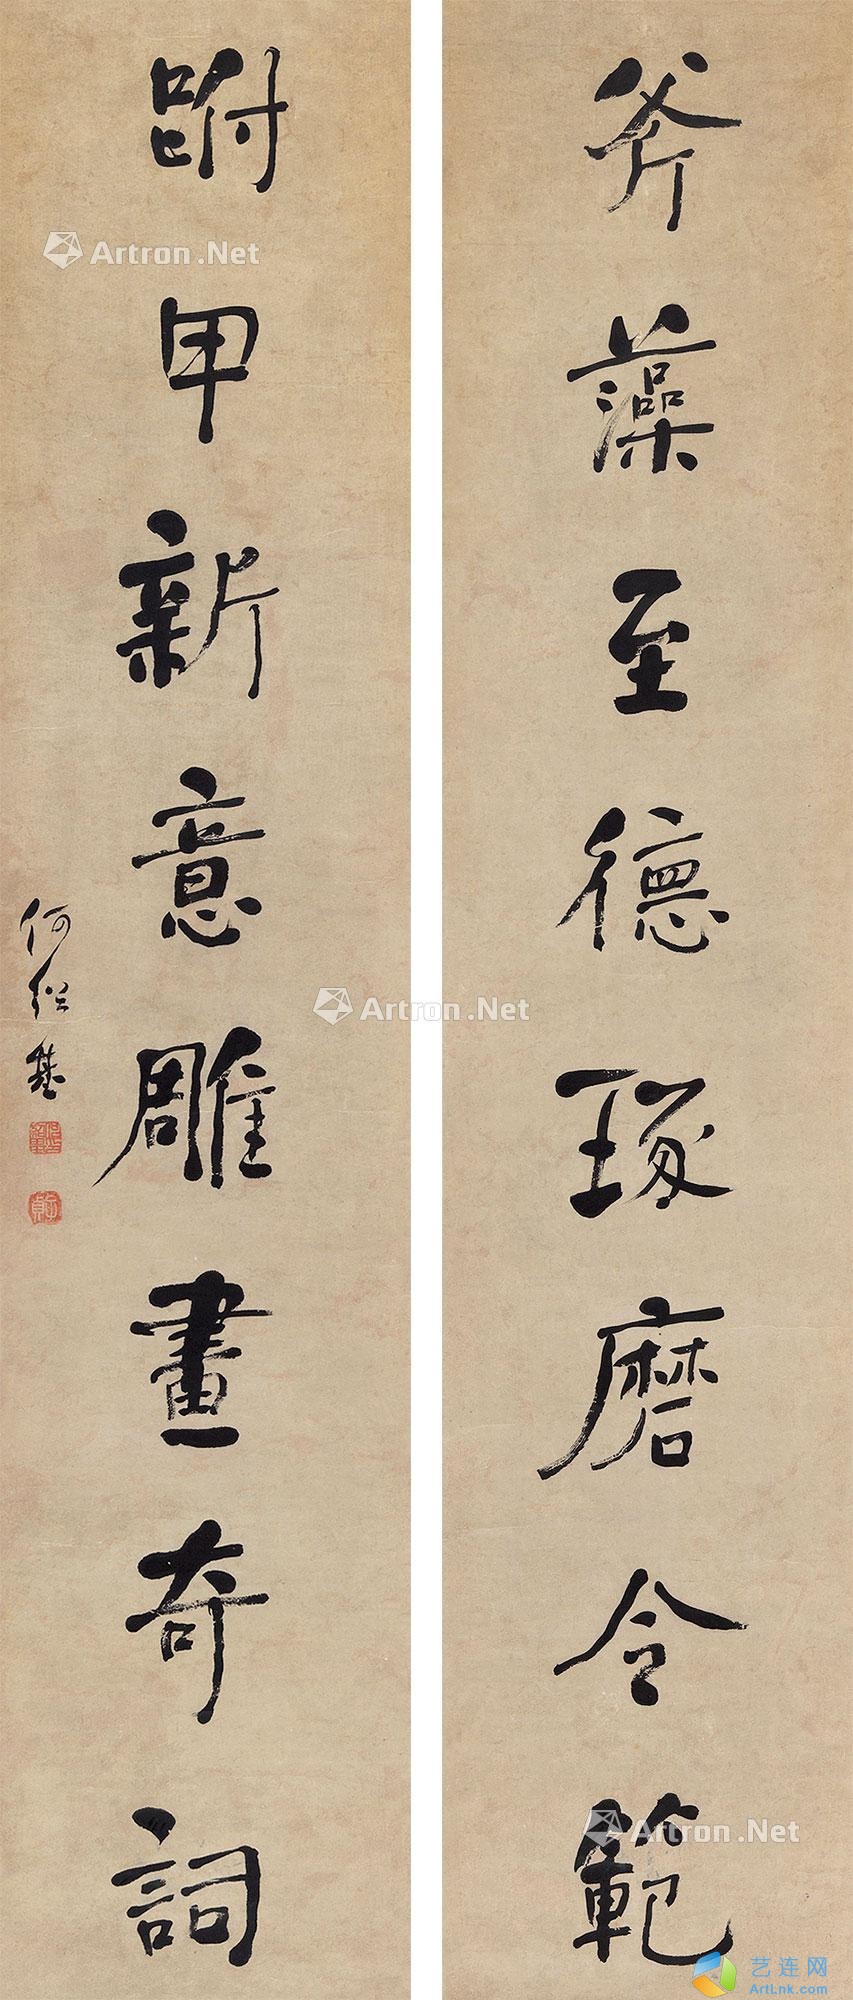 斧藻至德琢磨令範
跗甲新意雕畫奇詞
何紹基
子貞
Artron.Net
Artron.Net
Artron.Net
艺连网
ArtLnk.com